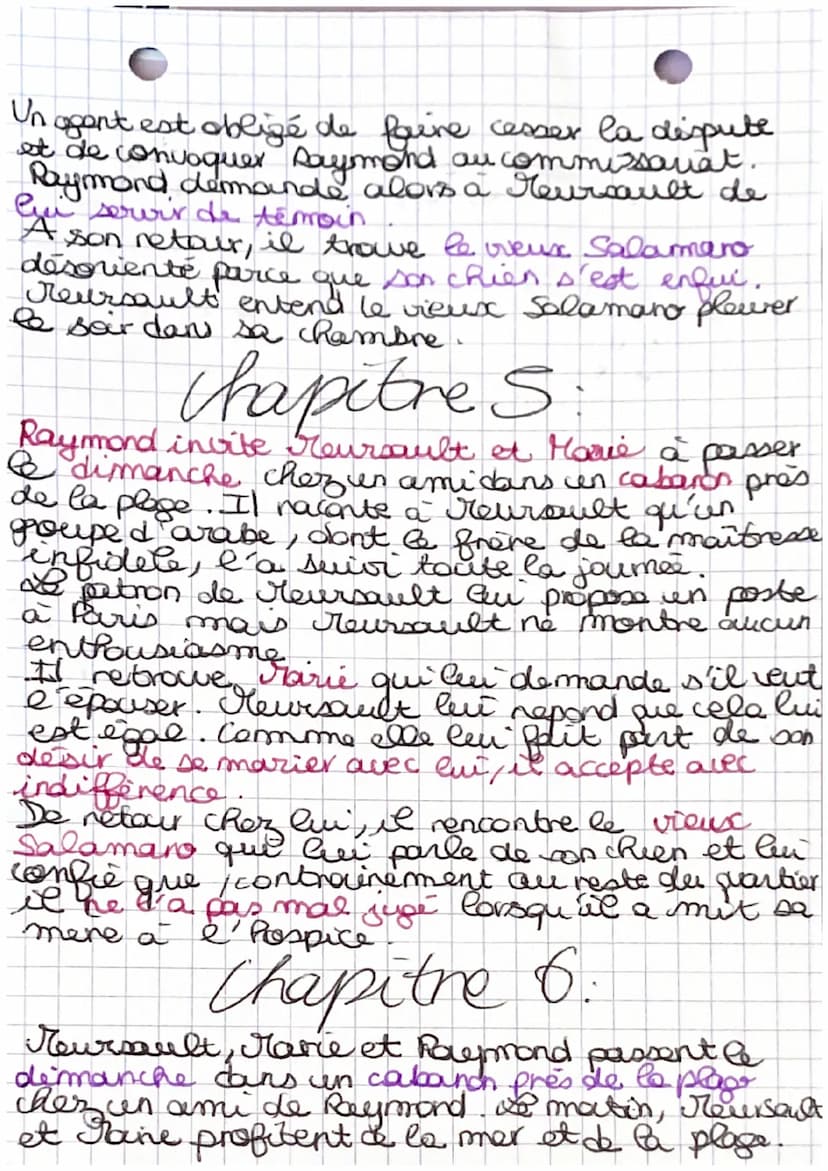 Un agent est obligé de faire cesser la dispute
et de convoquer Raymond au commissariat.
Raymond demande alors à Meursault de
lui servir de témoin
A son retour, il trouve le vieux Salamaro
désorienté parce que son chien s'est enfui.
Meursault entend le vieux Salamaro pleurer
le soir dans sa chambre.
Chapitre 5:
Raymond invite Meursault et Marie à passer
le dimanche chez un ami dans un cabanon près
de la plage. Il raconte à Meursault qu'un
groupe d'arabe, dont le frère de la maîtresse
infidèle, l'a suivi toute la journée.
Le patron de Meursault lui propose un poste
à Paris mais Meursault ne montre aucun
enthousiasme
Il retrouve Marie qui lui demande s'il veut
l'épouser. Meursault lui répond que cela lui
est égal. Comme elle lui fait part de son
désir de se marier avec lui, il accepte avec
indifférence.
De retour chez lui, il rencontre le vieux
Salamaro qui lui parle de son chien et lui
confie que, contrairement au reste du quartier
il ne l'a pas mal jugé lorsqu'il a mit sa
mère à l'hospice.
Chapitre 6:
Meursault, Marie et Raymond passent le
dimanche dans un cabanon près de la plage
chez un ami de Raymond. Le matin, Meursault
et Marie profitent de la mer et de la plage.